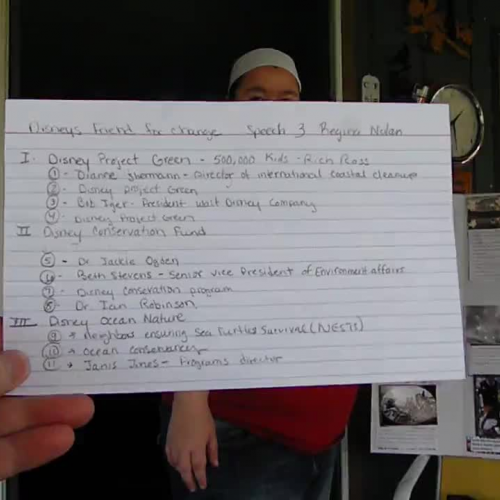 Disneys Friend for change Speech 3 Regina Nolan
I. Disney Project Green - 500,000 Kids - Rich Ross
① - Dianne Shermann - Director of international coastal cleanup
② - Disney project Green
③ - Bob Iger - President walt Disney Company
④ - Disney Project Green
II Disney Conservation Fund
⑤ - Dr Jackie Ogden
⑥ - Beth Stevens - Senior vice President of Environment affairs
⑦ - Disney conservation program
⑧ - Dr Ian Robinson
III Disney Ocean Nature
⑨ Neighbors ensuring Sea Turtles Survival (NESTS)
⑩ Ocean conservancy
⑪ Janis Jones - Programs director